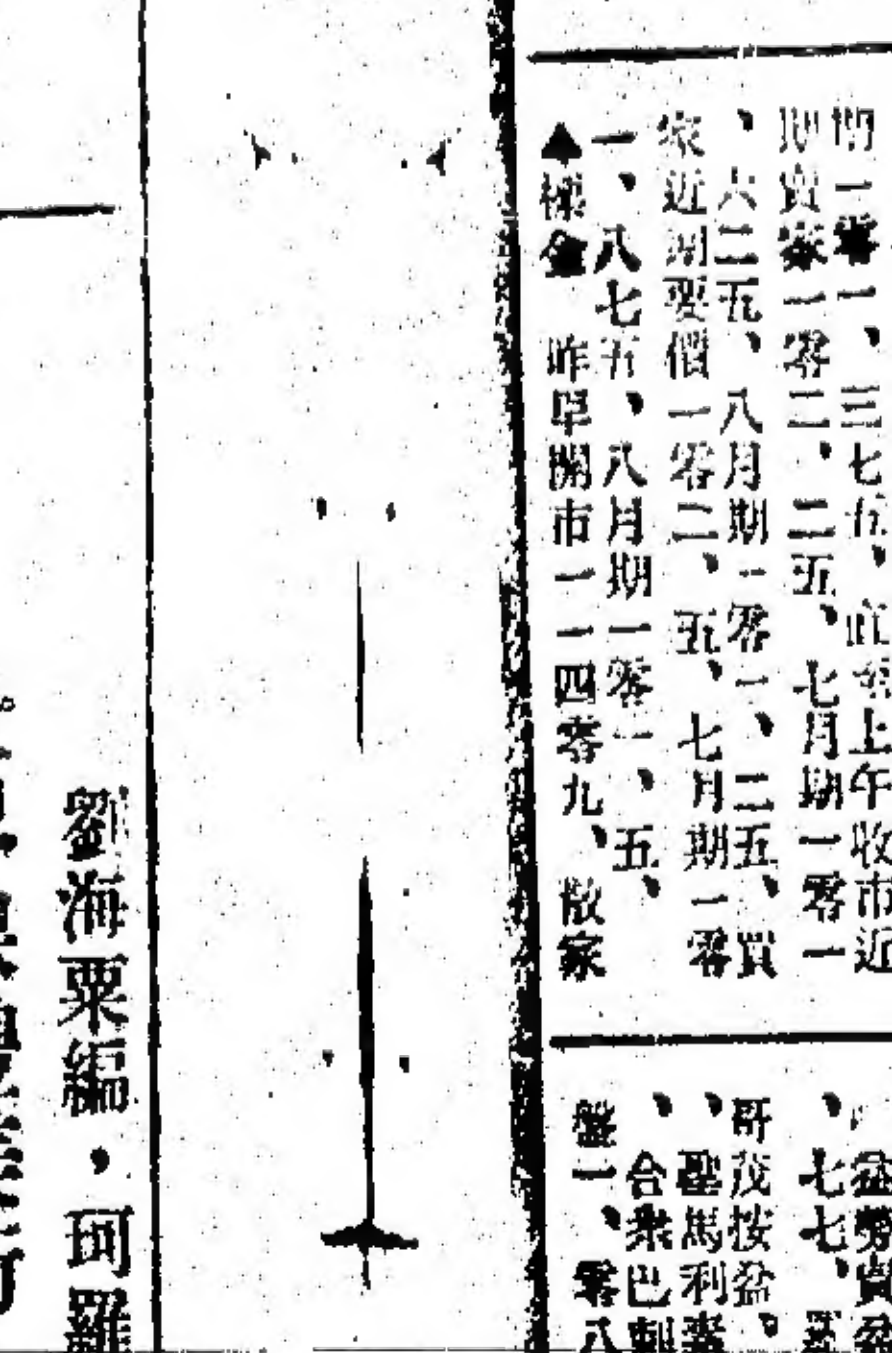 期一零一、三七五、直至上午收市近
期賣家一零二、二五、七月期一零一
、六二五、八月期一零一、二五、買
家近期要價一零二、五、七月期一零
一、八七五、八月期一零一、五、
▲標金　昨早開市一一四零九、散家
、七七、
哥茂按盆、
、聖馬利
、合衆巴剌
盤一、零八
劉海粟編，珂羅